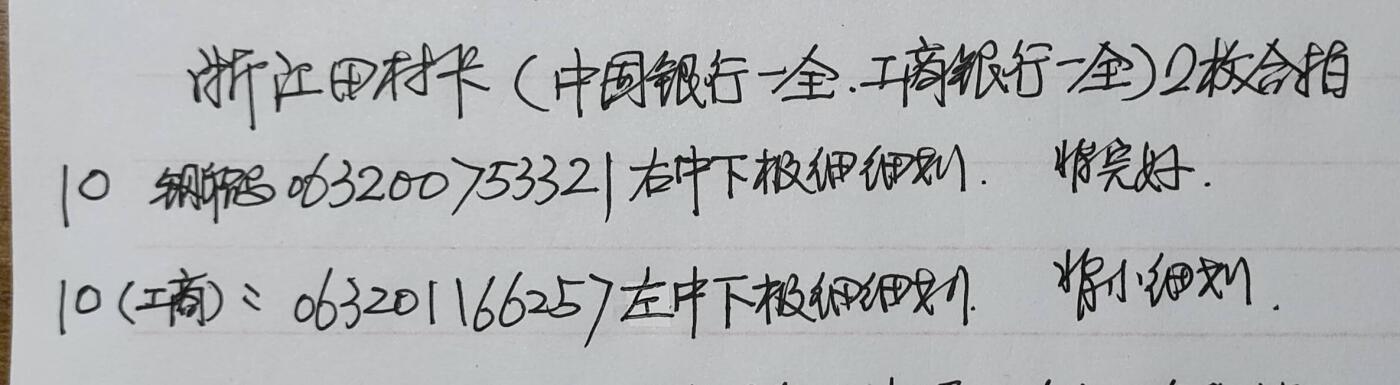 浙江田村卡（中国银行一全.工商银行一全）2枚合拍
10 063200753321右中下极细细划. 完好.
10（工商）: 063201166257左中下极细细划. 小细划.